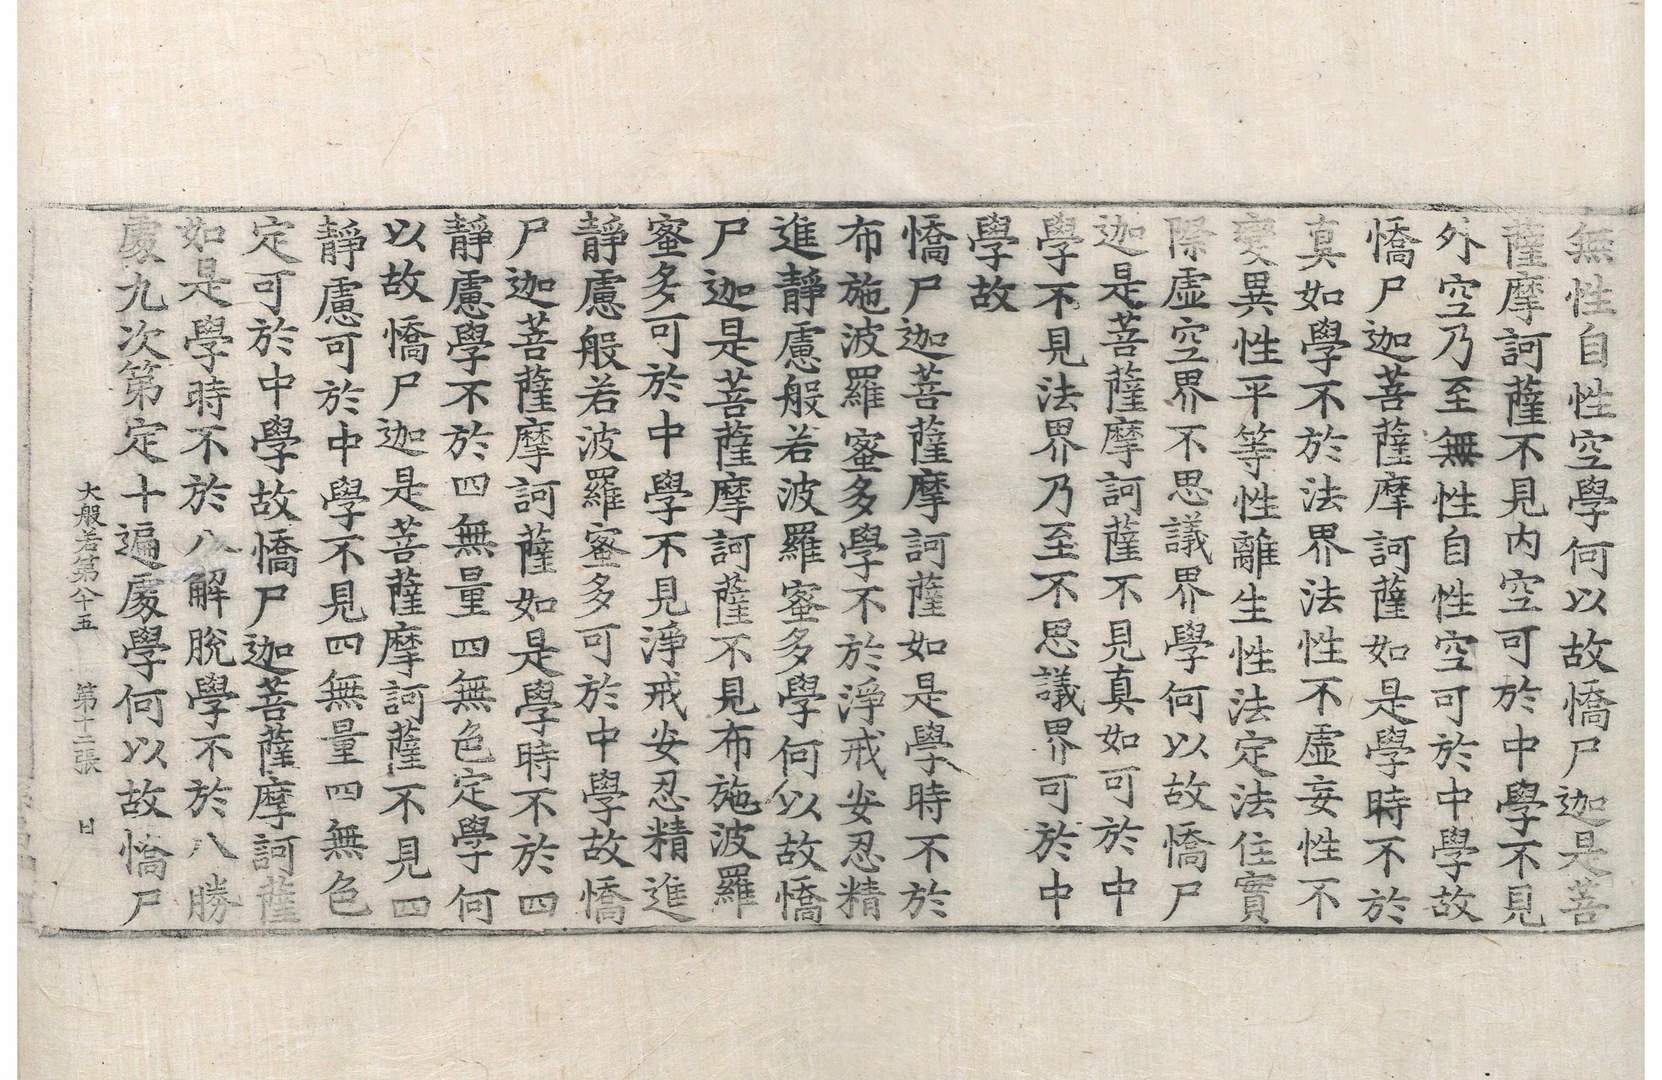 無性自性空學何以故憍尸迦是菩
薩摩訶薩不見内空可於中學不見
外空乃至無性自性空可於中學故
憍尸迦菩薩摩訶薩如是學時不於
真如學不於法界法性不虛妄性不
變異性平等性離生性法定法住實
際虛空界不思議界學何以故憍尸
迦是菩薩摩訶薩不見真如可於中
學不見法界乃至不思議界可於中
學故
憍尸迦菩薩摩訶薩如是學時不於
布施波羅蜜多學不於淨戒安忍精
進靜慮般若波羅蜜多學何以故憍
尸迦是菩薩摩訶薩不見布施波羅
蜜多可於中學不見淨戒安忍精進
靜慮般若波羅蜜多可於中學故憍
尸迦菩薩摩訶薩如是學時不於四
靜慮學不於四無量四無色定學何
以故憍尸迦是菩薩摩訶薩不見四
靜慮可於中學不見四無量四無色
定可於中學故憍尸迦菩薩摩訶薩
如是學時不於八解脫學不於八勝
處九次第定十遍處學何以故憍尸
大般若第八十五 第十二張 日